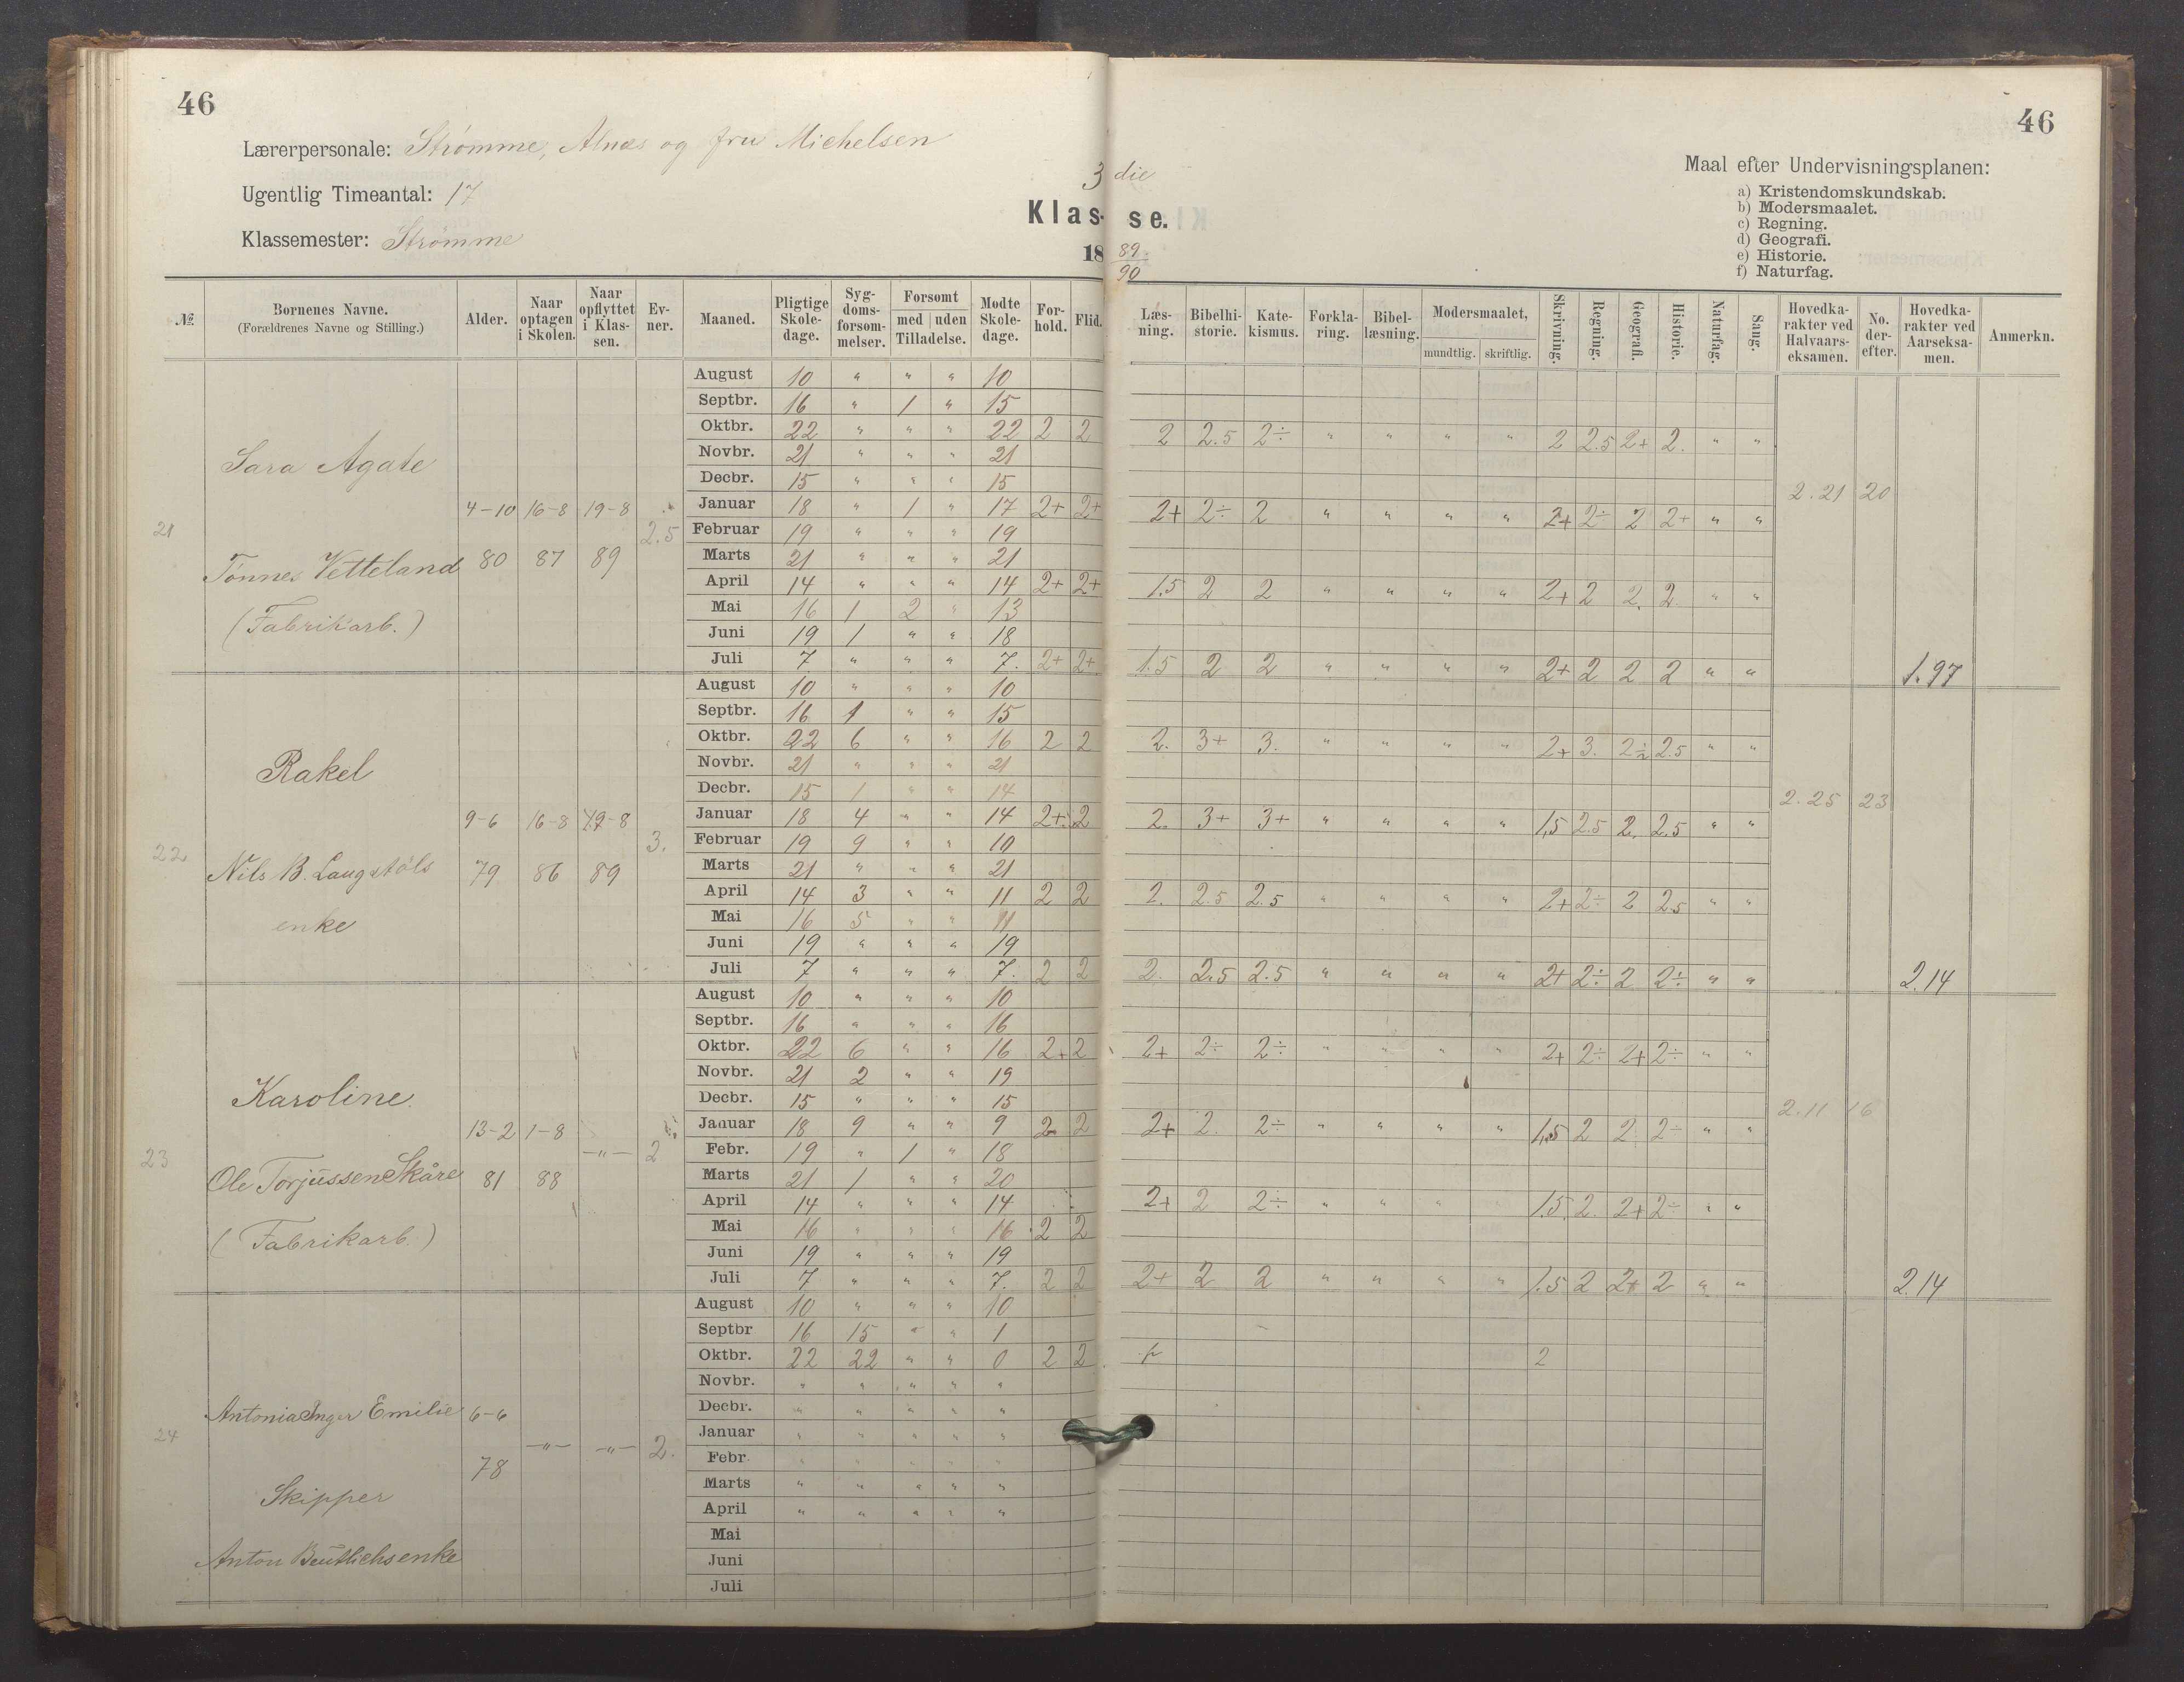 46
46
Lærerpersonale: Strømme, Alnæs og fru Michelsen
Ugentlig Timeantal: 17
Klassemester: Strømme
3 die
Klas- se.
18 89/90
Maal efter Undervisningsplanen:
a) Kristendomskundskab.
b) Modersmaalet.
c) Regning.
d) Geografi.
e) Historie.
f) Naturfag.
№ | Børnenes Navne. (Forældrenes Navne og Stilling.) | Alder. | Naar optagen i Skolen. | Naar opflyttet i Klassen. | Evner. | Maaned. | Pligtige Skoledage. | Sygdomsforsømmelser. | Forsømt med uden Tilladelse. | Mødte Skoledage. | Forhold. | Flid. | Læsning. | Bibelhistorie. | Katekismus. | Forklaring. | Bibellæsning. | Modersmaalet, mundtlig. skriftlig. | Skrivning. | Regning. | Geografi. | Historie. | Naturfag. | Sang. | Hovedkarakter ved Halvaarseksamen. | No. derefter. | Hovedkarakter ved Aarseksamen. | Anmerkn.
21 Sara Agate
4-10 80 16-8 87 19-8 89 2.5
Tønnes Vetteland
(Fabrikarb.)
August 10 " " " 10
Septbr. 16 " 1 " 15
Oktbr. 22 " " " 22 2 2 2 2.5 2÷ " " " " 2 2.5 2+ 2. " "
Novbr. 21 " " " 21
Decbr. 15 " " " 15
2.21 20
Januar 18 " 1 " 17 2+ 2+ 2+ 2÷ 2 " " " " 2+ 2÷ 2 2+ " "
Februar 19 " " " 19
Marts 21 " " " 21
April 14 " " " 14 2+ 2+ 1.5 2 2 " " " " 2+ 2 2. 2. " "
Mai 16 1 2 " 13
Juni 19 1 " " 18
Juli 7 " " " 7. 2+ 2+ 1.5 2 2 " " " " 2+ 2 2 2 " " 1.97
22 Rakel
9-6 79 16-8 86 19-8 89 3.
Nils B. Laugstøls
enke
August 10 " " " 10
Septbr. 16 1 " " 15
Oktbr. 22 6 " " 16 2 2 2. 3+ 3. " " " " 2+ 3. 2÷ 2.5 " "
Novbr. 21 " " " 21
Decbr. 15 1 " " 14
2.25 23
Januar 18 4 " " 14 2+ 2 2. 3+ 3+ " " " " 1,5 2.5 2. 2.5 " "
Februar 19 9 " " 10
Marts 21 " " " 21
April 14 3 " " 11 2 2 2. 2.5 2.5 " " " " 2+ 2÷ 2 2.5 " "
Mai 16 5 " " 11
Juni 19 " " " 19
Juli 7 " " " 7. 2 2 2. 2.5 2.5 " " " " 2+ 2÷ 2 2÷ " " 2.14
23 Karoline
13-2 81 1-8 88 -"- 2
Ole Torjussen Skåre
(Fabrikarb.)
August 10 " " " 10
Septbr. 16 " " " 16
Oktbr. 22 6 " " 16 2+ 2 2+ 2÷ 2÷ " " " " 2+ 2÷ 2+ 2÷ " "
Novbr. 21 2 " " 19
Decbr. 15 " " " 15
2.11 16
Januar 18 9 " " 9 2 2 2+ 2. 2÷ " " " " 1,5 2 2. 2÷ " "
Febr. 19 " 1 " 18
Marts 21 1 " " 20
April 14 " " " 14 2+ 2 2÷ " " " 1.5. 2. 2+ 2÷ " "
Mai 16 " " " 16 2 2
Juni 19 " " " 19
Juli 7 " " " 7. 2 2 2+ 2 2 " " " " 1.5 2 2+ 2 " " 2.14
24 Antonia Inger Emilie
6-6 78 -"- -"- 2.
Skipper
Anton Beutlichs enke
August 10 " " " 10
Septbr 16 15 " " 1
Oktbr. 22 22 " " 0 2 2 2
Novbr. " " " " "
Decbr. " " " " "
Januar " " " " "
Febr " " " " "
Marts " " " " "
April " " " " "
Mai
Juni
Juli